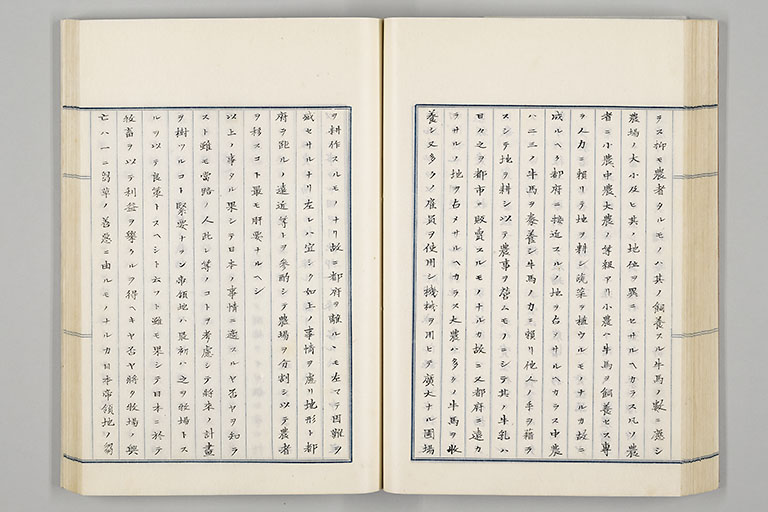 ラス抑モ農者タルモノハ其ノ飼養スル牛馬ノ數ニ應シ
農場ノ大小及ヒ其ノ地位ヲ異ニセサルヘカラス凡ソ農
者ニ小農中農大農ノ等級アリ小農ハ牛馬ヲ飼養セス專
ラ人力ニ頼リテ地ヲ耕シ蔬菜ヲ植ウルモノナルカ故ニ
成ルヘク都府ニ接近スルノ地ヲ占メサルヘカラス中農
ハ二三ノ牛馬ヲ豢養シ牛馬ノ力ニ頼リ他人ノ手ヲ藉ラ
スシテ地ヲ耕シ以テ農事ヲ營ムモノニシテ其ノ牛乳ハ
日々之ヲ都市ニ販賣スルモノナルカ故ニ又都府ニ遠カ
ラサルノ地ヲ占メサルヘカラス大農ハ多クノ牛馬ヲ牧
養シ又多クノ雇員ヲ使用シ機械ヲ用ヒテ廣大ナル圃場
ヲ耕作スルモノナリ故ニ都府ヲ離ルヽモ左マテ困難ヲ
感セサルナリ左レハ宜シク如上ノ事情ヲ慮リ地形ト都
府ヲ距ルノ遠近等トヲ參酌シテ農場ヲ分割シ以テ農者
ヲ移スコト最モ肝要ナルヘシ
以上ノ事タル果シテ日本ノ事情ニ適スルヤ否ヤヲ知ラ
スト雖モ當路ノ人此レ等ノコトヲ考慮シテ將來ノ計畫
ヲ樹ツルコト緊要ナラン事領地ハ最初ハ之ヲ牧場トス
ルヲ以テ良策トスヘシト云フト雖モ果シテ日本ニ於テ
牧畜ヲ以テ利益ヲ擧クルヲ得ヘキヤ否ヤ將タ牧場ノ興
亡ハ一ニ芻草ノ善惡ニ由ルモノナルカ日本帝領地ノ芻